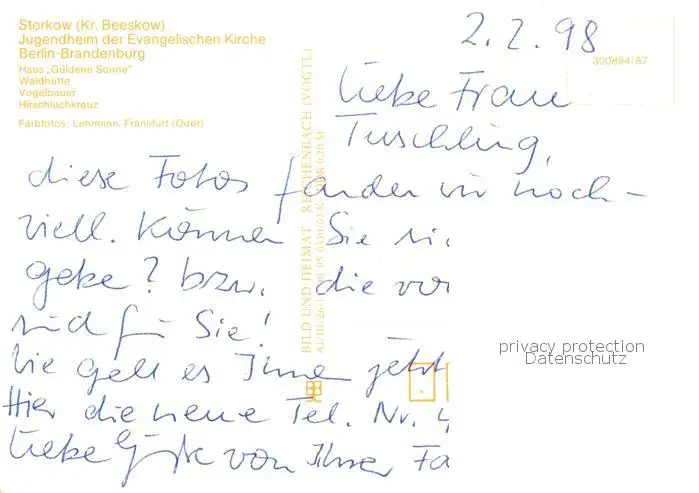 Storkow (Kr. Beeskow)
Jugendheim der Evangelischen Kirche
Berlin-Brandenburg
Haus „Güldene Sonne"
Waldhütte
Vogelbauer
Hirschluchkreuz
Farbfotos: Lehmann, Frankfurt (Oder)
300894/87
BILD UND HEIMAT REICHENBACH (VOGTL)
2.2.98
Liebe Frau
Tuschling,
diese Fotos fanden wir noch –
viell. können Sie
? bzw. die
sind für Sie!
Wie geht es Ihnen jetzt
Hier die neue Tel. Nr. 4
Liebe von Ihrer Fa
privacy protection
Datenschutz